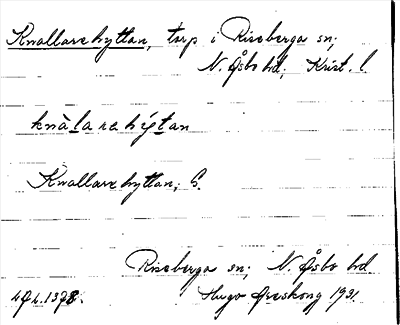 Knallarehyttan, torp i Riseberga sn;
N. Åsbo hd; Krist. l.
knàlarehýtan
Knallarehyttan; G.
Riseberga sn; N. Åsbo hd
Hugo Areskoug 1931.